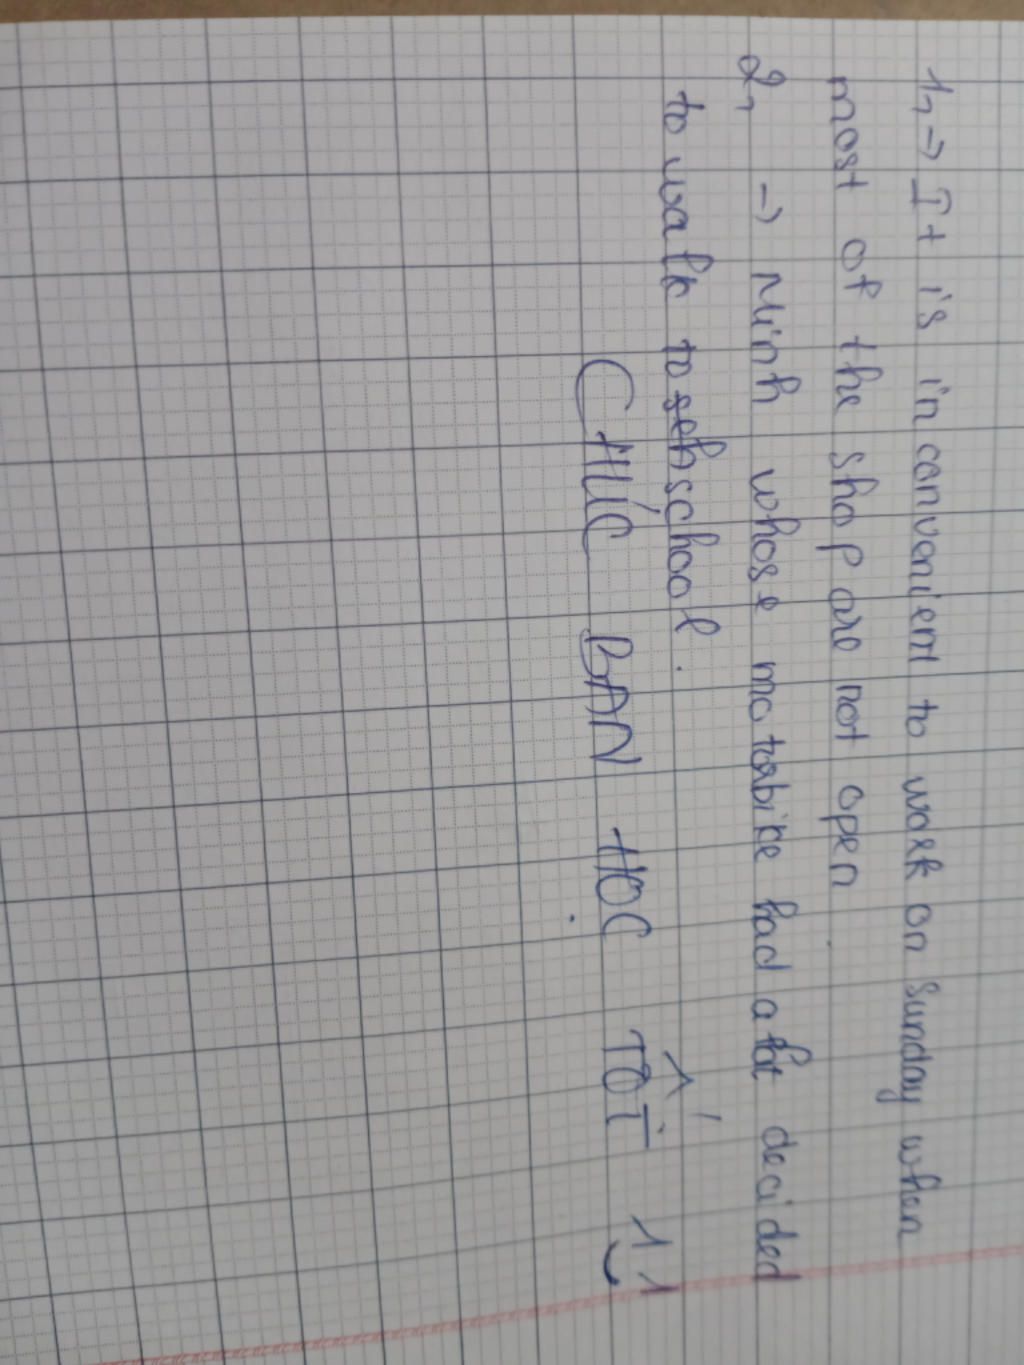 1, → It is inconvenient to work on Sunday when
most of the shop are not open
2, → Minh whose motorbike had a fat decided
to walk to seh school.
CHÚC BẠN HỌC TỐT ^^